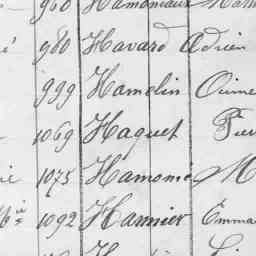 960 Hamoniaux
é 980 Havard Adrien
999 Hamelin
1069 Haquet
1075 Hamomé M
1092 Hannier Emma